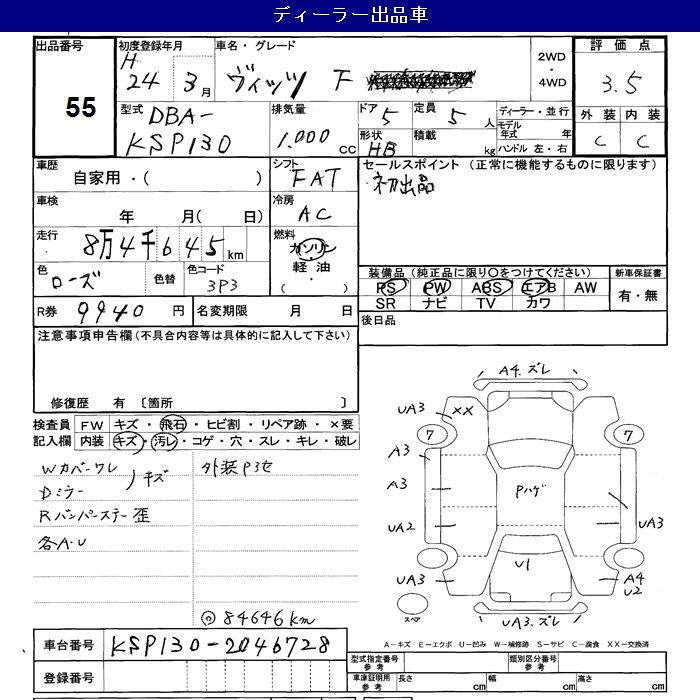 ディーラー出品車
出品番号 55
初度登録年月 H 24年 3月
車名・グレード ヴィッツ F
2WD ・ 4WD
評価点 3.5
外装 C 内装 C
型式 DBA- KSP130
排気量 1,000 CC
ドア 5
定員 5 人
形状 HB
積載 kg
ディーラー・並行
モデル年式 年
ハンドル 左・右
車歴 自家用・( )
シフト FAT
セールスポイント (正常に機能するものに限ります)
初出品
車検 年 月( 日)
冷房 AC
走行 8万4千645km
燃料 ガソリン・軽油・( )
色 ローズ 色替
色コード 3P3
装備品 (純正品に限り○をつけてください)
PS PW ABS エアB AW
SR ナビ TV カワ
新車保証書 有・無
R券 9940 円
名変期限 月 日
後日品
注意事項申告欄 (不具合内容等は具体的に記入して下さい)
修復歴 有 〔箇所 〕
検査員記入欄
FW キズ・飛石・ヒビ割・リペア跡・×要
内装 キズ・汚レ・コゲ・穴・スレ・キレ・破レ
Wカバーワレ
Dミラー
キズ
Rバンパーステー歪
各A・U
外装P3セ
◎84646km
A4.ズレ
UA3 XX
7 7
A3
A3
Pハゲ
UA2 UA3
U1
UA3 A4 U2
スペア
UA3.ズレ
A-キズ E-エクボ U-凹み W-補修跡 S-サビ C-腐食 XX-交換済
車台番号 KSP130-2046728
登録番号
型式指定番号 参考
類別区分番号 参考
車庫証明用 参考 長さ cm 幅 cm 高さ cm